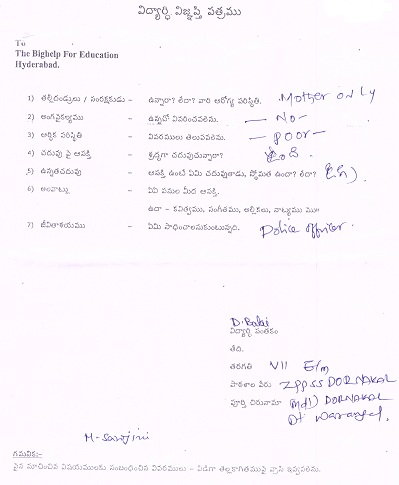 విద్యార్థి విజ్ఞప్తి పత్రము
To
The Bighelp For Education
Hyderabad.
1) తల్లిదండ్రులు / సంరక్షకుడు – ఉన్నారా? లేదా? వారి ఆరోగ్య పరిస్థితి. Mother only
2) అంగవైకల్యము – ఉన్నచో వివరించవలెను. – No –
3) ఆర్థిక పరిస్థితి – వివరములు తెలుపవలెను. – poor –
4) చదువు పై ఆసక్తి – శ్రద్ధగా చదువుచున్నారా?
5) ఉన్నతచదువు – ఆసక్తి ఉంటే ఏమి చదువుతాడు, స్థోమత ఉందా? లేదా?
6) అలవాట్లు – ఏఏ పనుల మీద ఆసక్తి.
ఉదా – కవిత్వము, సంగీతము, అల్లికలు, నాట్యము మొ॥
7) జీవితాశయము – ఏమి సాధించాలనుకుంటున్నది. Police officer
D. Babi
విద్యార్థి సంతకం
తేది.
తరగతి VII E/m
పాఠశాల పేరు ZPPSS DORNAKAL
పూర్తి చిరునామా (Md) DORNAKAL
Dt Warangal.
M. Sarojini
గమనిక:-
పైన సూచించిన విషయములకు సంబంధించిన వివరములు – విడిగా తెల్లకాగితముపై వ్రాసి ఇవ్వవలెను.